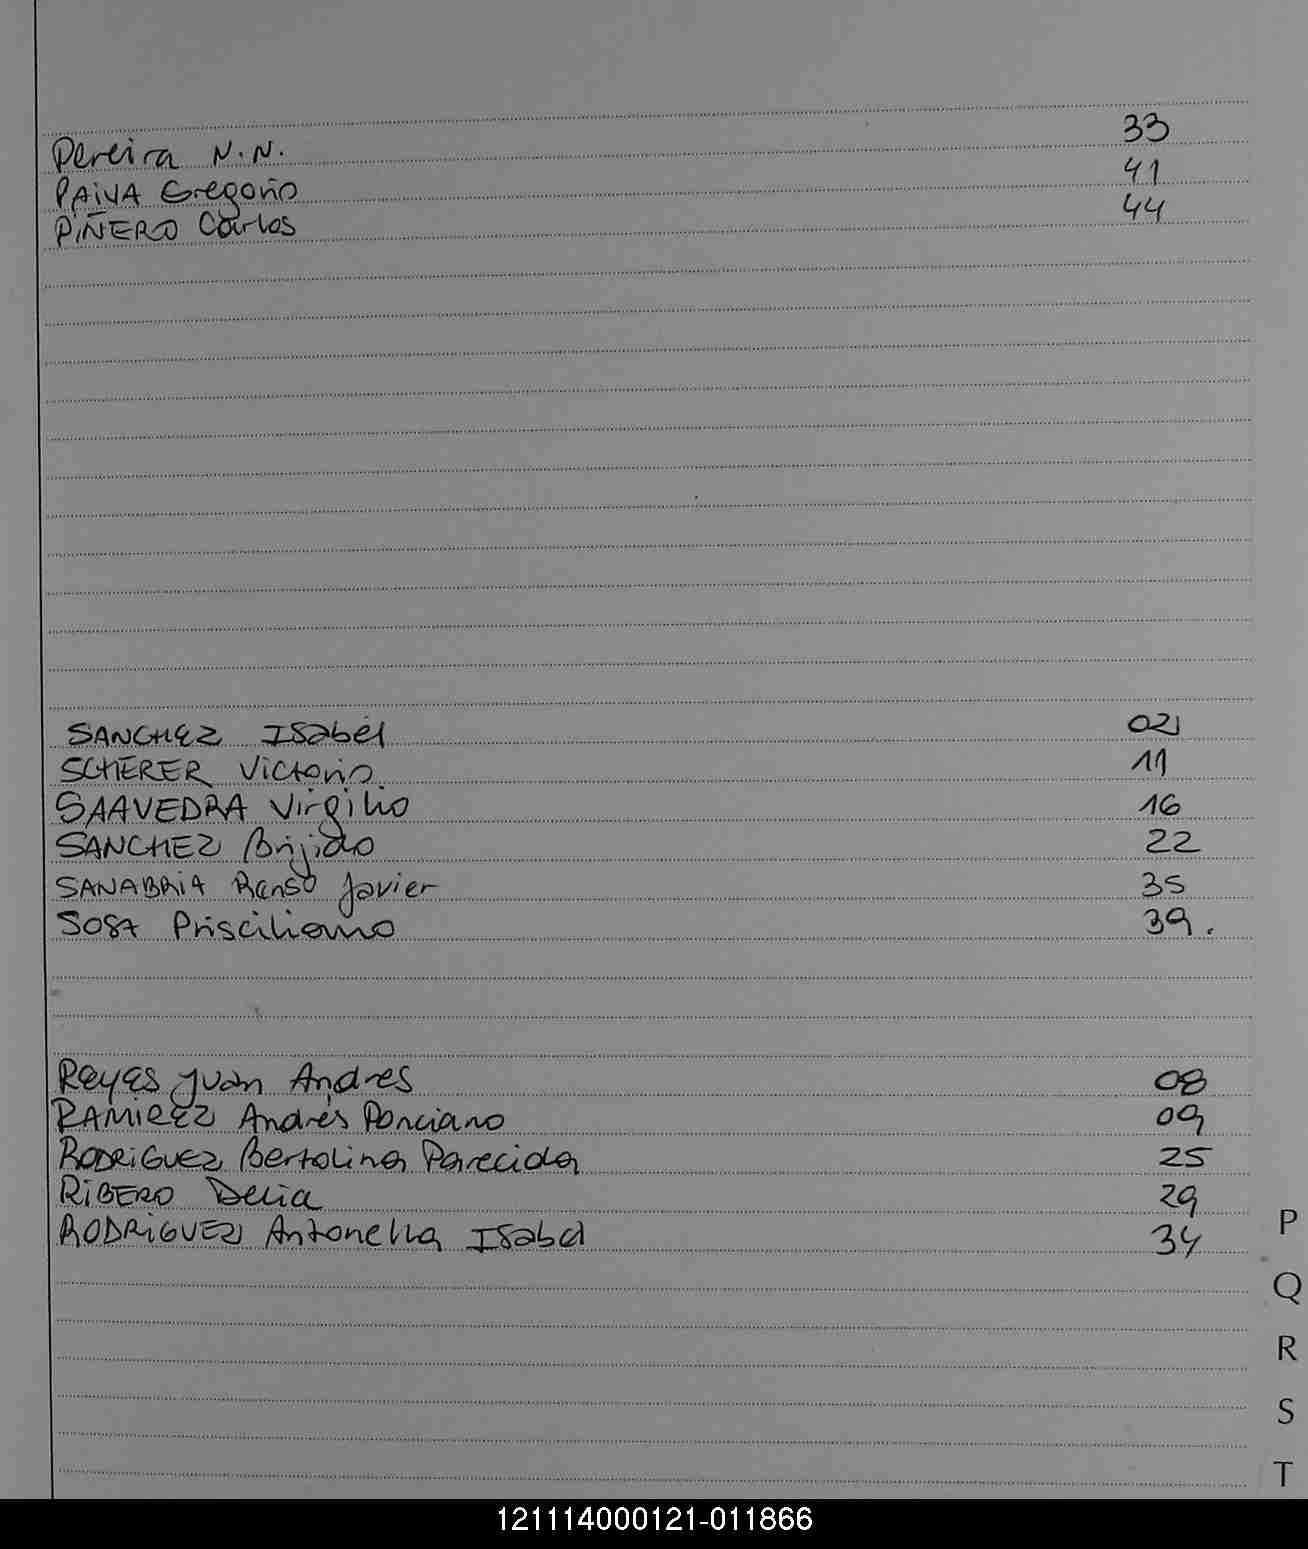 Pereira N.N. 33
PAiVA Gregorio 41
PiÑERO Carlos 44
SANCHEZ ISabel 02
SCHERER Victorio 11
SAAVEDRA Virgilio 16
SANCHEZ Brijido 22
SANABRiA Renso Javier 35
SOSA Prisciliano 39.
Reyes Juan Andres 08
RAMIREZ Andrés Ponciano 09
RODRiGUEZ Bertolina Parecida 25
RiBERO Delia 29
RODRiGUEZ Antonella ISabel 34
P
Q
R
S
T
121114000121-011866